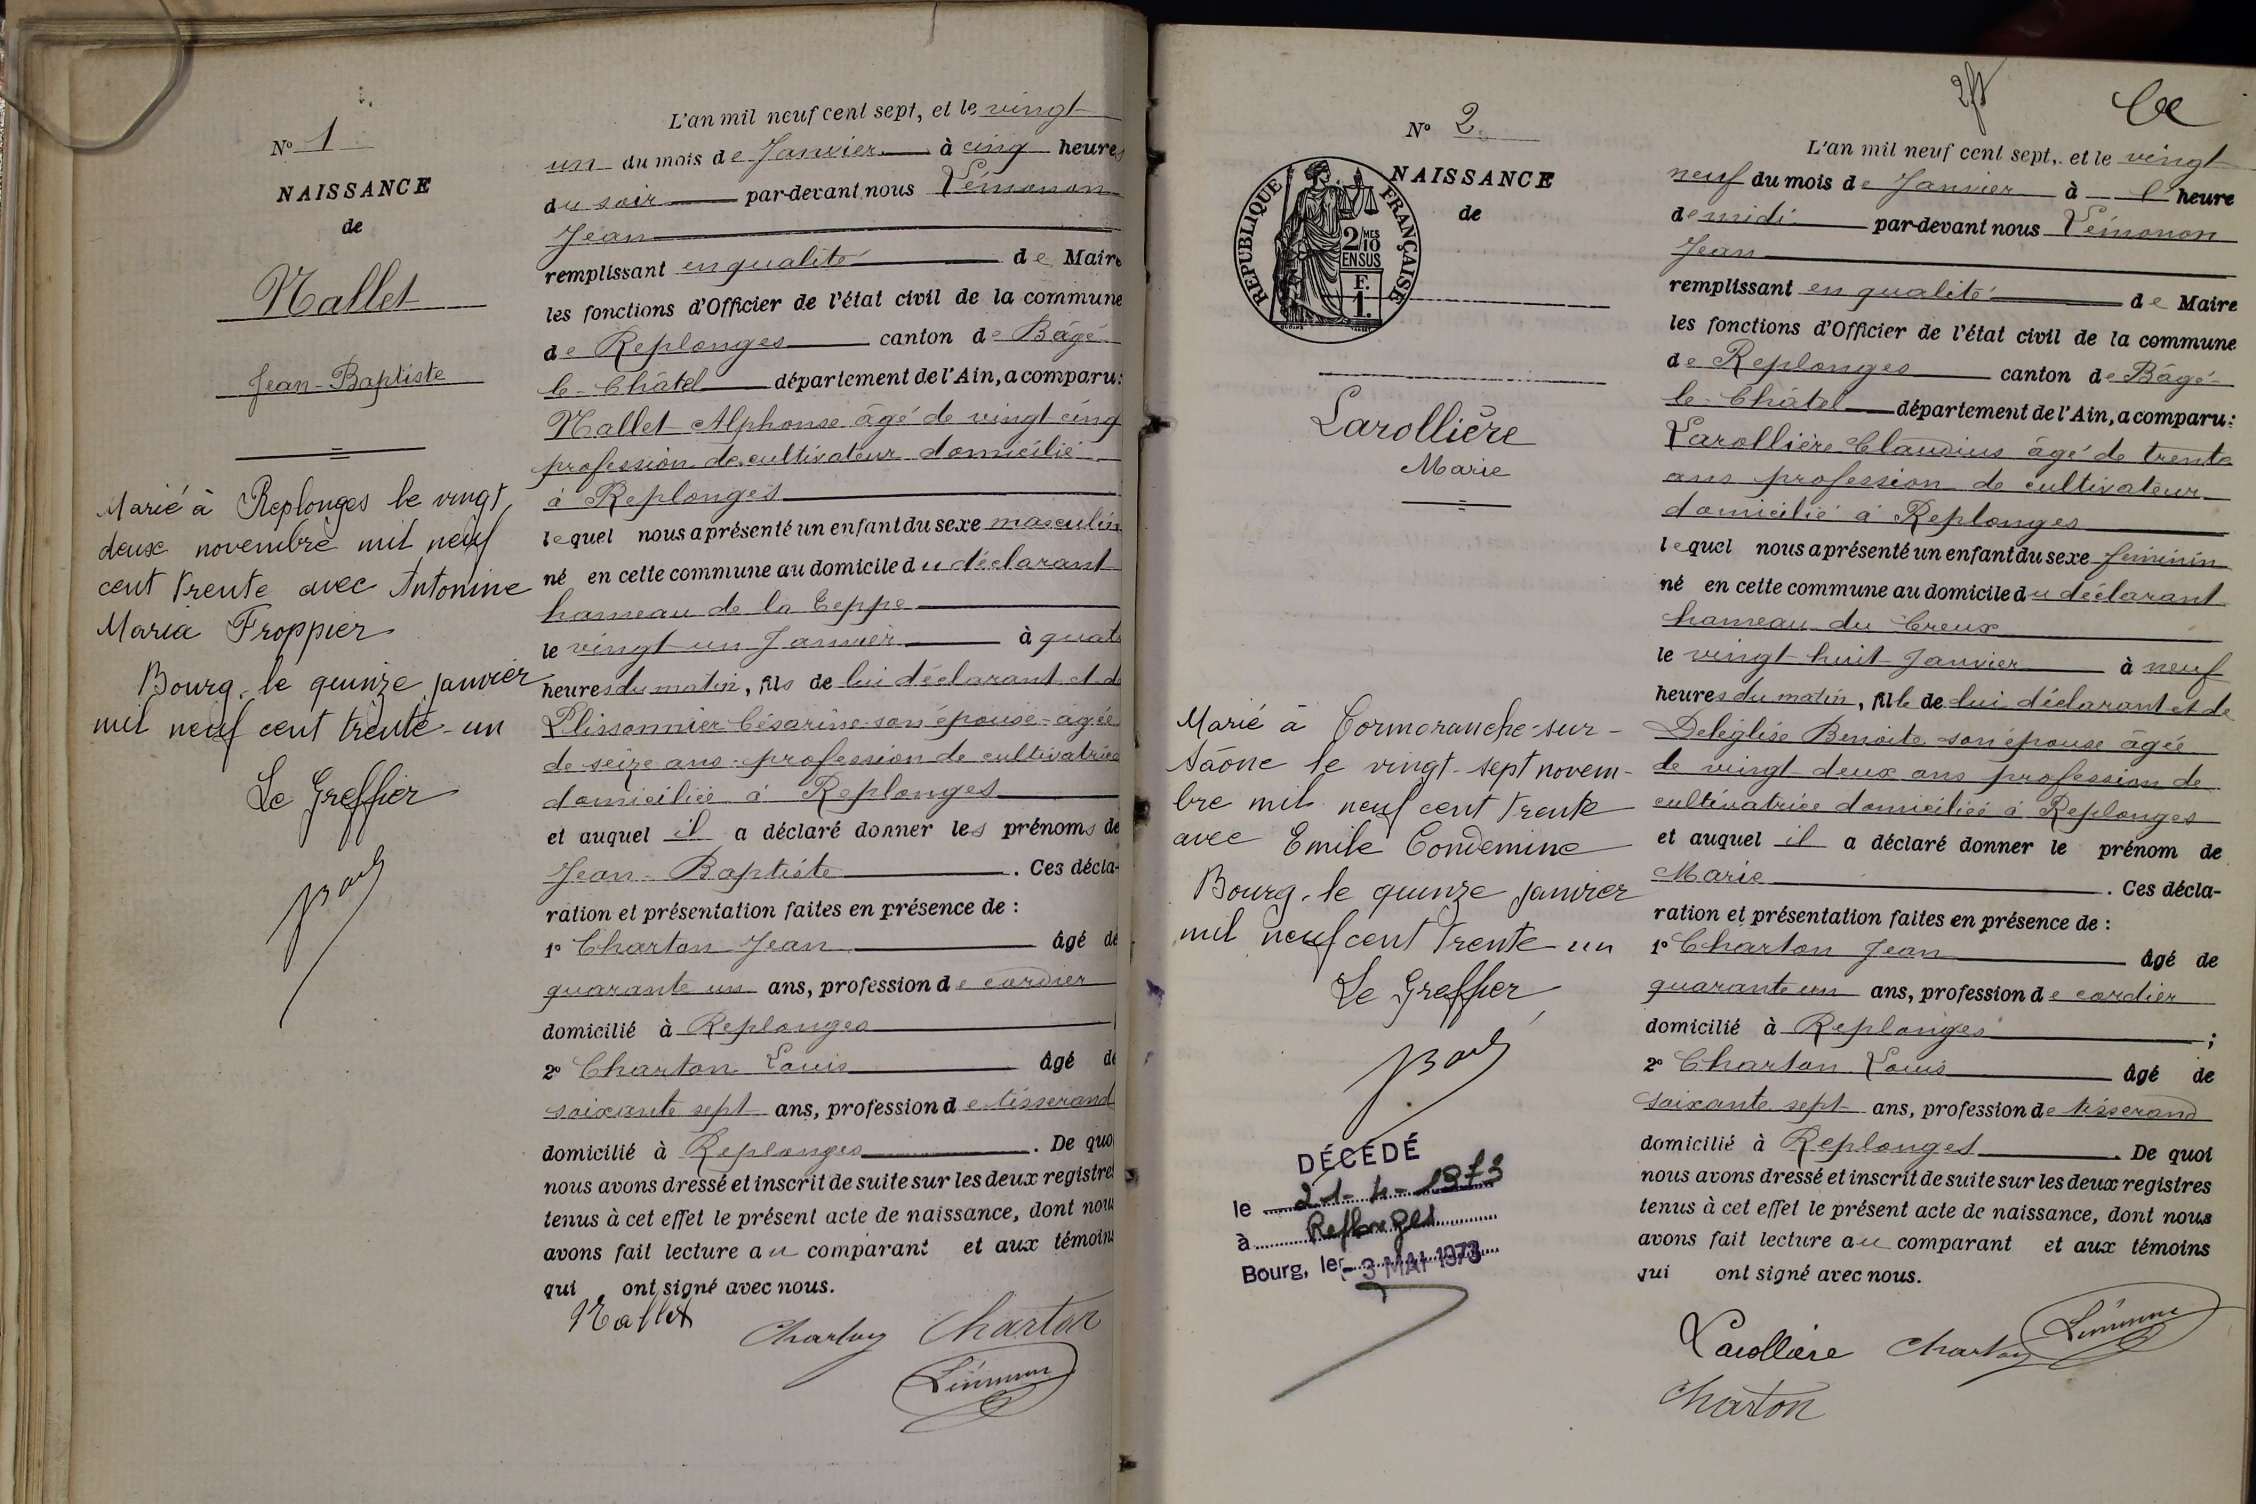 Nº 1
NAISSANCE
de
Mallet
Jean-Baptiste
Marié à Replonges le vingt
deux novembre mil neuf
cent trente avec Antonine
Maria Froppier
Bourg, le quinze janvier
mil neuf cent trente-un
Le Greffier
L'an mil neuf cent sept, et le vingt
un du mois de Janvier à cinq heures
du soir par-devant nous Lémonon
Jean
remplissant en qualité de Maire
les fonctions d'Officier de l'état civil de la commune
de Replonges canton de Bâgé
le Châtel département de l'Ain, a comparu:
Mallet Alphonse âgé de vingt cinq
profession de cultivateur domicilié
à Replonges
lequel nous a présenté un enfant du sexe masculin
né en cette commune au domicile du déclarant
hameau de la Teppe
le vingt un Janvier à quat
heures du matin, fils de lui déclarant et de
Plissonnier Césarine son épouse âgée
de seize ans profession de cultivatrice
domiciliée à Replonges
et auquel il a déclaré donner les prénoms de
Jean-Baptiste. Ces décla-
ration et présentation faites en présence de :
1º Charton Jean âgé de
quarante un ans, profession de cordier
domicilié à Replonges
2º Charton Louis âgé de
soixante sept ans, profession de tisserand
domicilié à Replonges. De quoi
nous avons dressé et inscrit de suite sur les deux registres
tenus à cet effet le présent acte de naissance, dont nous
avons fait lecture au comparant et aux témoins
qui ont signé avec nous.
Mallet
Charton Charton
Lémonon
Nº 2
REPUBLIQUE FRANÇAISE
2/10 MES
EN SUS
F.
1.
NAISSANCE
de
Larollière
Marie
Marié à Cormoranche-sur-
Saône le vingt-sept novem-
bre mil neuf cent trente
avec Emile Condemine
Bourg, le quinze janvier
mil neuf cent trente-un
Le Greffier
DÉCÉDÉ
le 21-4-1973
à Replonges
Bourg, le - 3 MAI 1973
L'an mil neuf cent sept, et le vingt
neuf du mois de Janvier à heure
de midi par-devant nous Lémonon
Jean
remplissant en qualité de Maire
les fonctions d'Officier de l'état civil de la commune
de Replonges canton de Bâgé-
le-Châtel département de l'Ain, a comparu:
Larollière Claudius âgé de trente
ans profession de cultivateur
domicilié à Replonges
lequel nous a présenté un enfant du sexe féminin
né en cette commune au domicile du déclarant
hameau du Creux
le vingt huit Janvier à neuf
heures du matin, fille de lui déclarant et de
Deléglise Benoite son épouse âgée
de vingt deux ans profession de
cultivatrice domiciliée à Replonges
et auquel il a déclaré donner le prénom de
Marie. Ces décla-
ration et présentation faites en présence de :
1º Charton Jean âgé de
quarante un ans, profession de cordier
domicilié à Replonges ;
2º Charton Louis âgé de
soixante sept ans, profession de tisserand
domicilié à Replonges. De quoi
nous avons dressé et inscrit de suite sur les deux registres
tenus à cet effet le présent acte de naissance, dont nous
avons fait lecture au comparant et aux témoins
qui ont signé avec nous.
Larollière Charton Lémonon
Charton